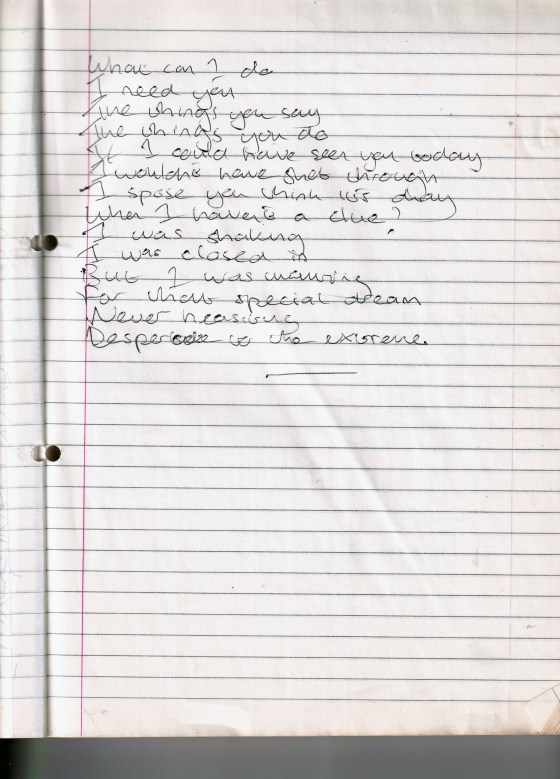 What can I do
I need you
The things you say
The things you do
If I could have seen you today
I wouldn't have through
I spose you think it's okay
When I haven't a clue?
I was shaking
I was closed in
But I was
For that special dream
Never
Desperate to the extreme.